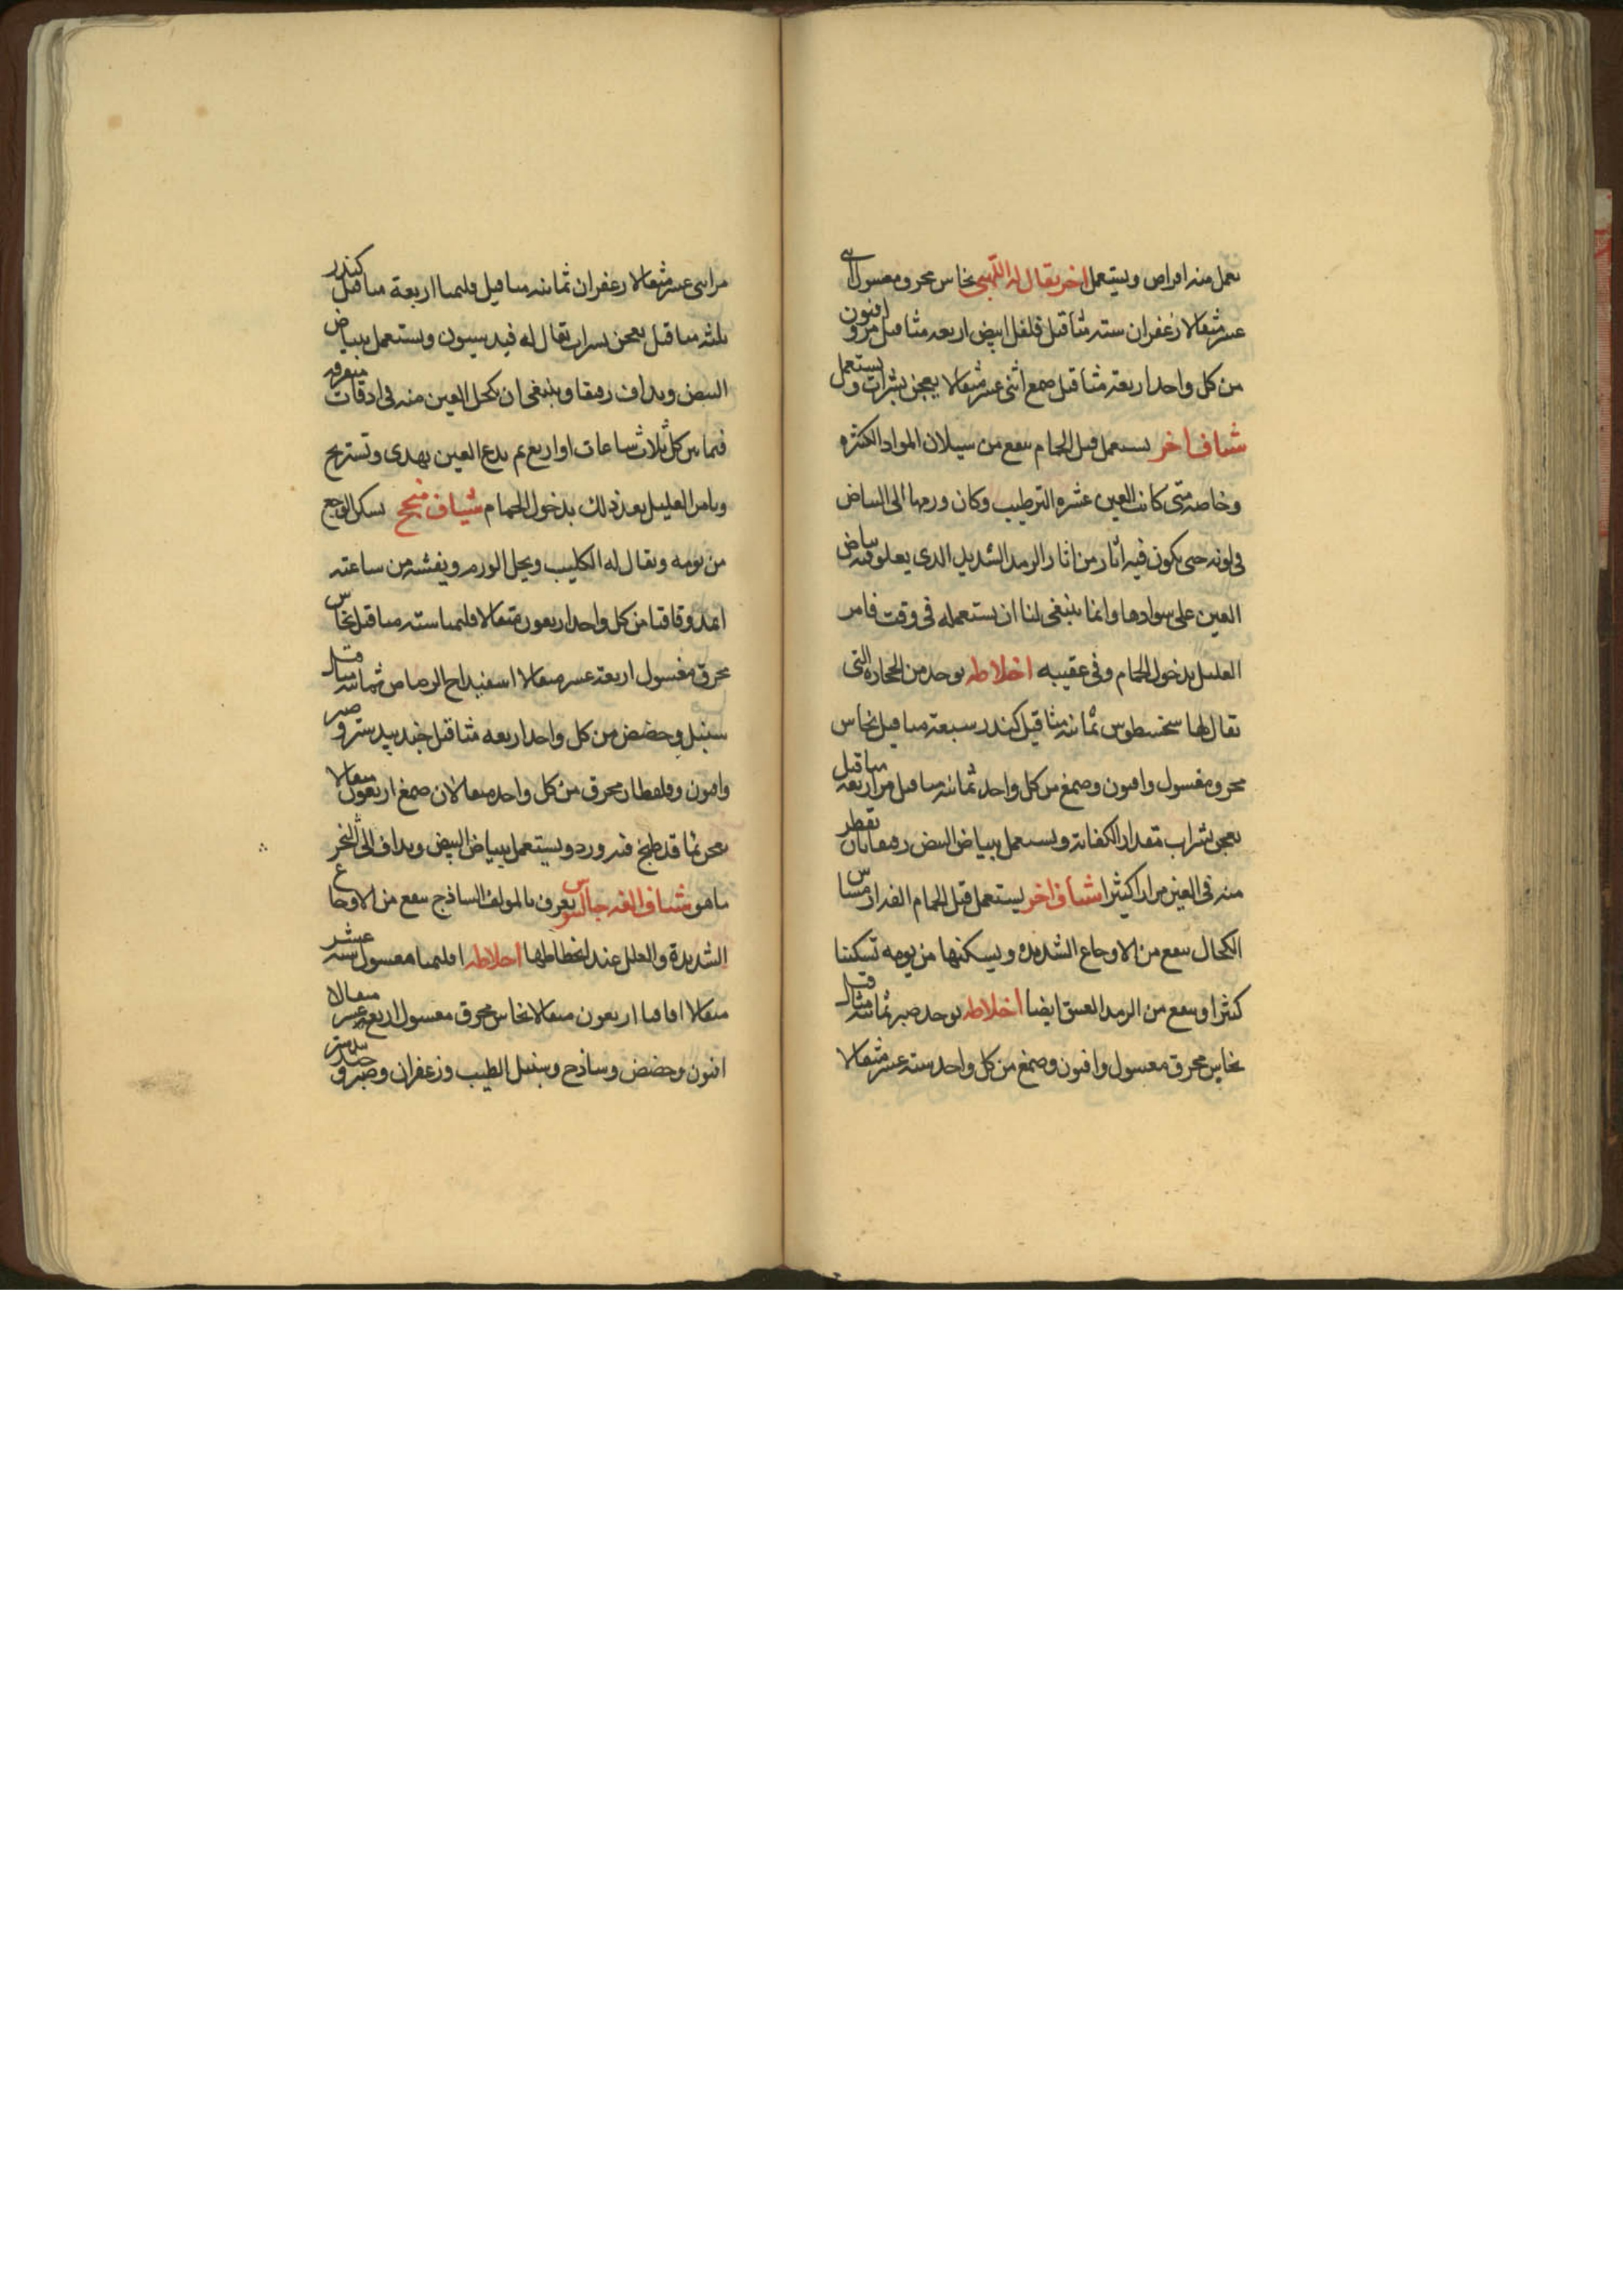 يعمل منه اقراص ويستعمل اخر يقال له اللهبى نحاس محرق مغسول اثنى
عشر مثقالا زعفران ستة مثاقيل فلفل ابيض اربعه مثاقيل مر وافيون
من كل واحد اربعة مثاقيل صمغ اثنى عشر مثقالا يعجن بشراب ويستعمل
شياف اخر يستعمل قبل الحمام ينفع من سيلان المواد الكثيره
وخاصة متى كانت العين عشره الترطيب وكان ورمها الى البياض
فى لونه حتى يكون فيه اثار من اثار الرمد الشديد الذى يعلو فيه بياض
العين على سوادها وانما ينبغى لنا ان نستعمله فى وقت نامر
العليل بدخول الحمام وفى عقيبه اخلاطه يوخذ من الحجاره التى
يقال لها سخسطوس ثمانية مثاقيل كندر سبعة مثاقيل نحاس
محرق مغسول وافيون وصمغ من كل واحد ثمانية مثاقيل مر اربعة مثاقيل
يعجن بشراب مقدار الكفاية ويستعمل ببياض البيض رقيقا بان يقطر
منه فى العين مرارا كثيرا شياف اخر يستعمل قبل الحمام
الكحال ينفع من الاوجاع الشديده ويسكنها من يومه تسكينا
كثيرا وينفع من الرمد العتيق ايضا اخلاطه يوخذ صبر ثمانية مثاقيل
نحاس محرق مغسول وافيون وصمغ من كل واحد ستة عشر مثقالا
مر اثنى عشر مثقالا زعفران ثمانية مثاقيل اقليميا اربعة مثاقيل كندر
ثلثة مثاقيل يعجن بشراب يقال له ويستعمل ببياض
البيض ويداف رقيقا وينبغى ان تكحل العين منه فى اوقات متفرقه
فيما بين كل ثلاث ساعات او اربع ثم يدع العين تهدى وتستريح
ويامر العليل بعد ذلك بدخول الحمام شياف منجح يسكن الوجع
من يومه ويقال له الكليب ويحل الورم ويفشه من ساعته
اثمد وقاقيا من كل واحد اربعون مثقالا اقليميا ستة مثاقيل نحاس
محرق مغسول اربعة عشر مثقالا اسفيداج الرصاص ثمانية مثاقيل
سنبل وحضض من كل واحد اربعه مثاقيل جندبيدستر وصبر
وافيون وقلقطار محرق من كل واحد مثقالان صمغ اربعون مثقالا
يعجن بما قد طبخ فيه ورد ويستعمل ببياض البيض ويداف الى الثخن
ما هو شياف الفه جالينوس يعرف بالمولف الساذج ينفع من الاوجاع
الشديدة والعلل عند انحطاطها اخلاطه اقليميا مغسول ستة عشر
مثقالا اقاقيا اربعون مثقالا نحاس محرق مغسول اربعة عشر مثقالا
افيون وحضض وساذج وسنبل الطيب وزعفران وصبر وجندبيدستر